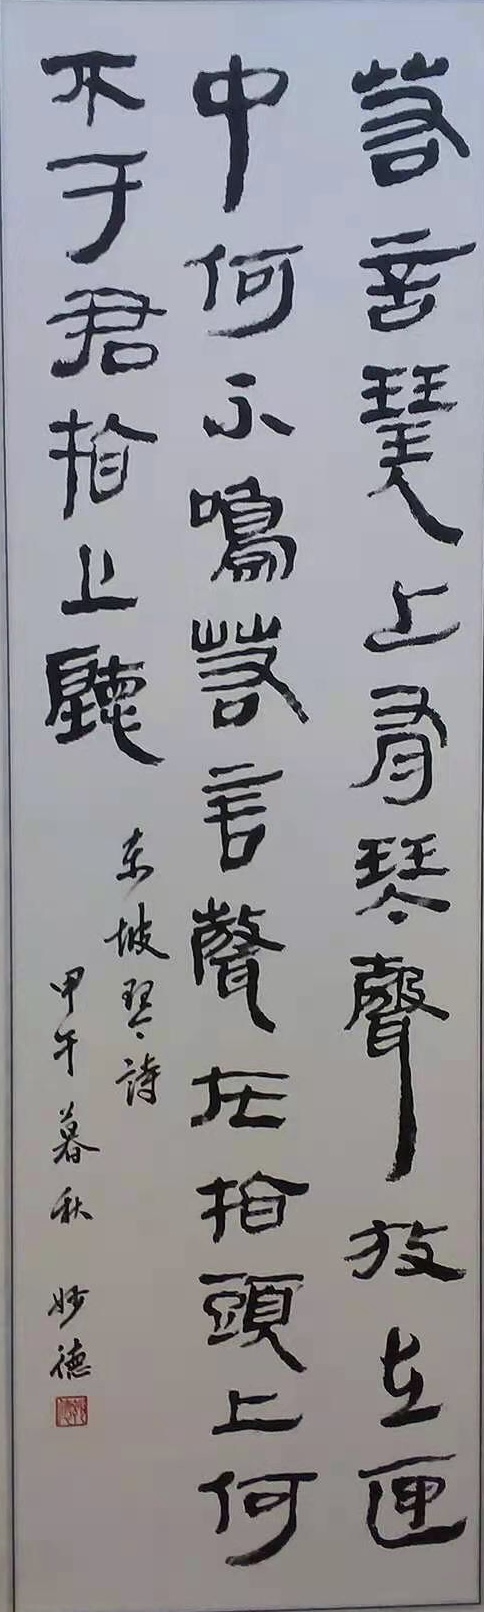 若言琴上有琴聲放在匣
中何不鳴若言聲在指頭上何
不于君指上聽
东坡琴詩
甲午暮秋 妙德